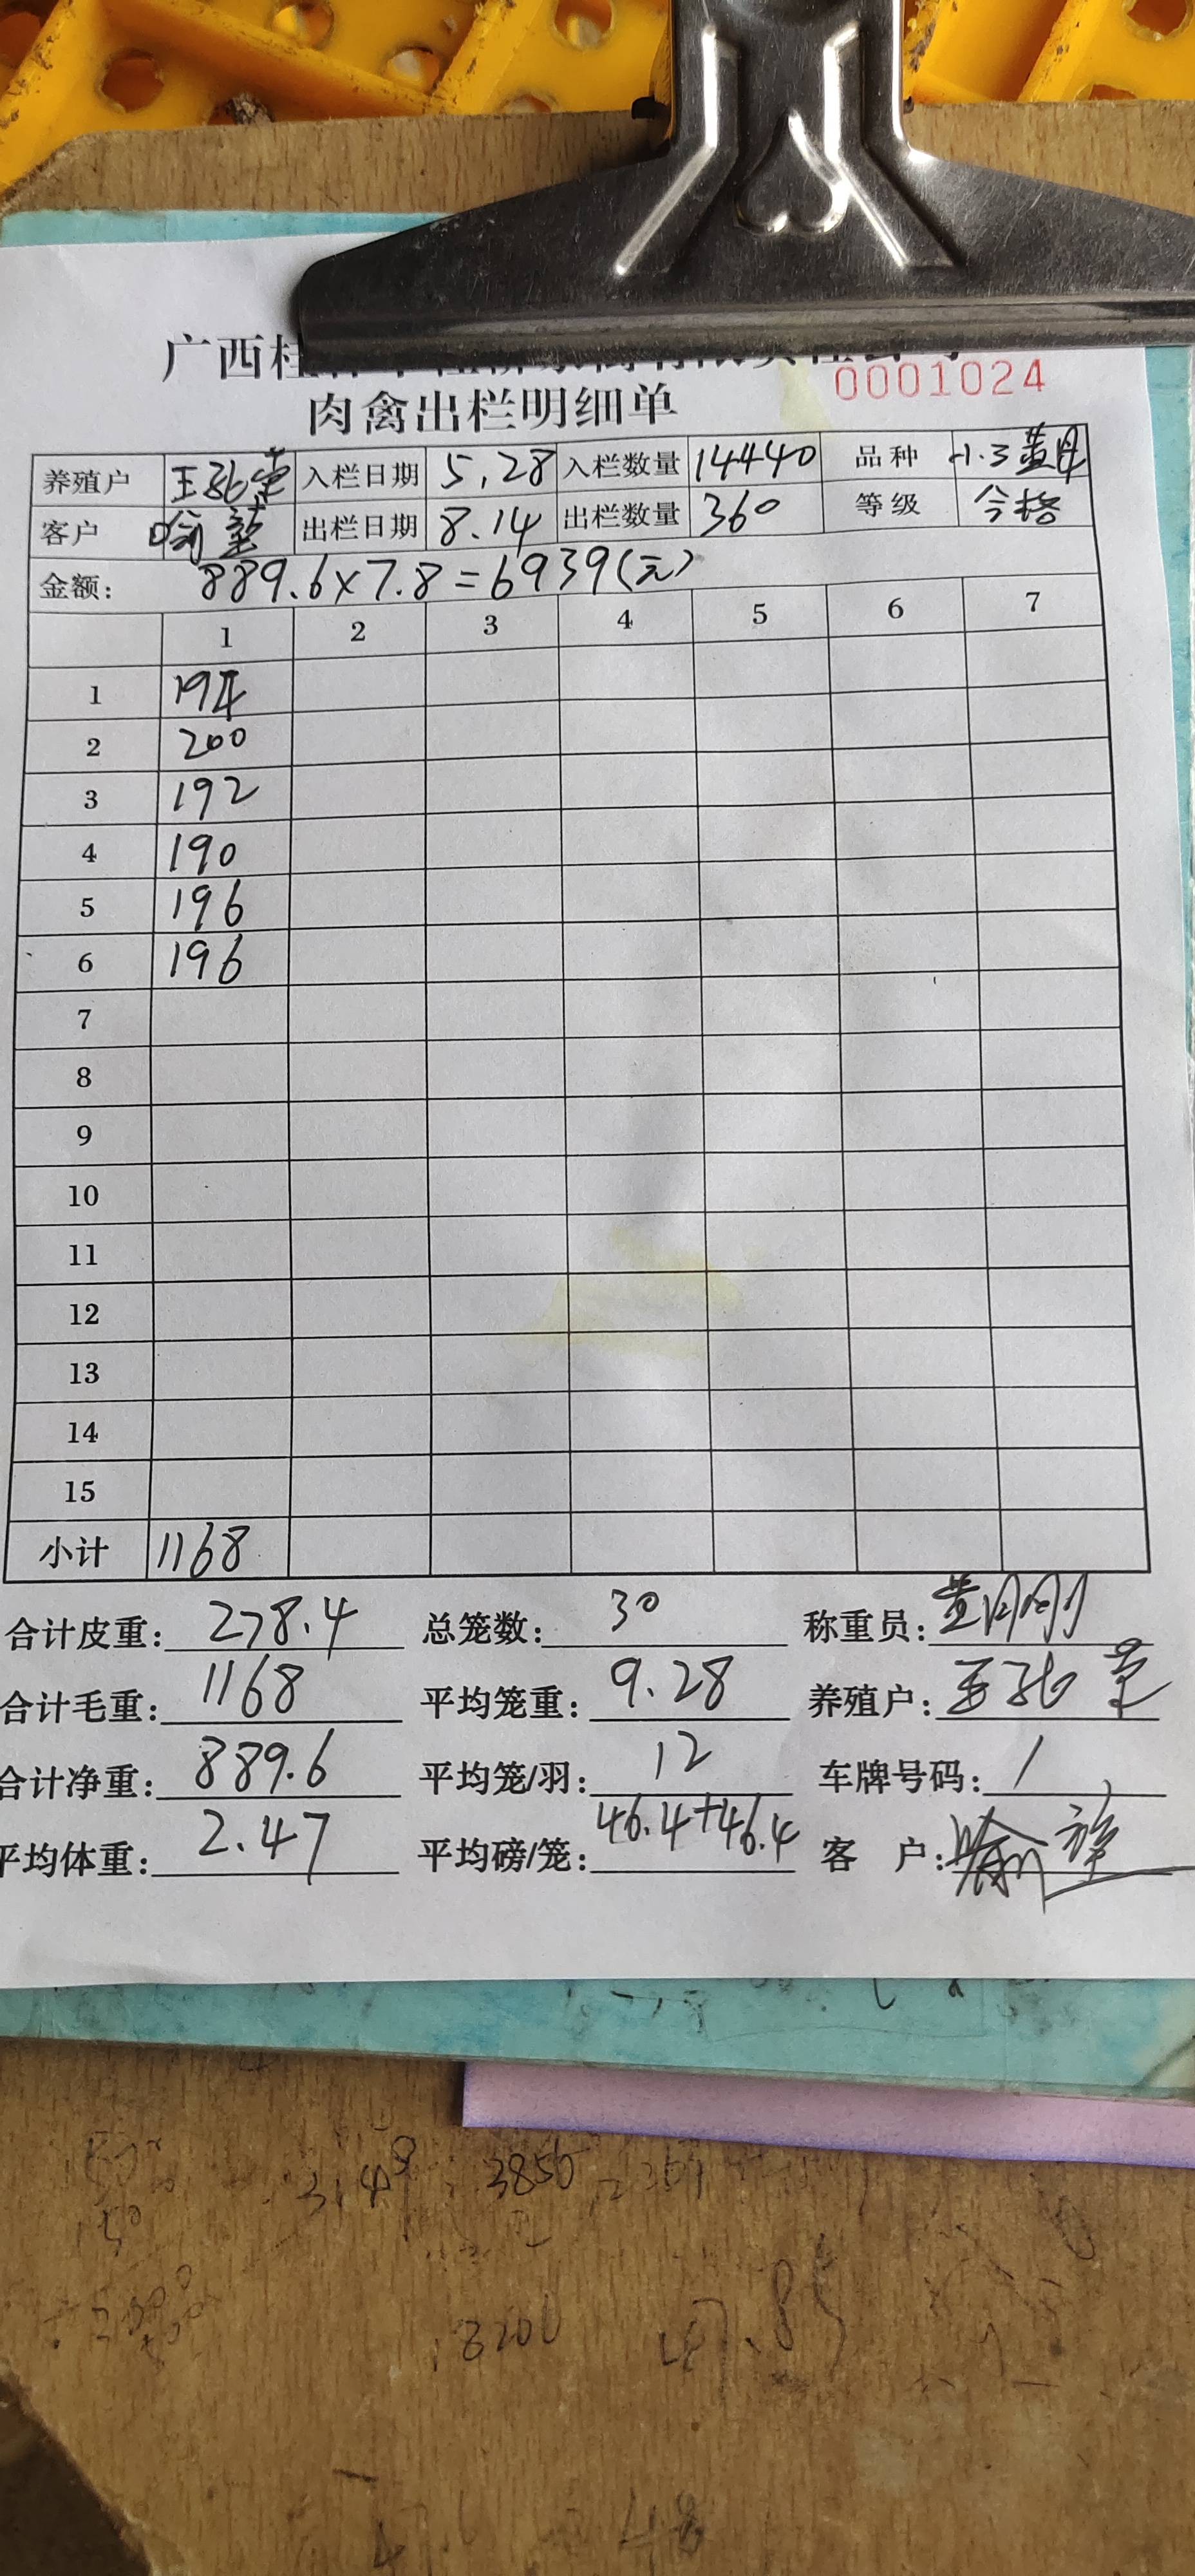 广西桂
0001024
肉禽出栏明细单
养殖户 入栏日期 5.28 入栏数量 14440 品种
客户 出栏日期 8.14 出栏数量 360 等级 合格
金额: 889.6×7.8=6939(元)
1 2 3 4 5 6 7
1 194
2 200
3 192
4 190
5 196
6 196
7
8
9
10
11
12
13
14
15
小计 1168
合计皮重: 278.4 总笼数: 30 称重员:
合计毛重: 1168 平均笼重: 9.28 养殖户:
合计净重: 889.6 平均笼/羽: 12 车牌号码: /
平均体重: 2.47 平均磅/笼: 46.4+46.4 客 户:
3850